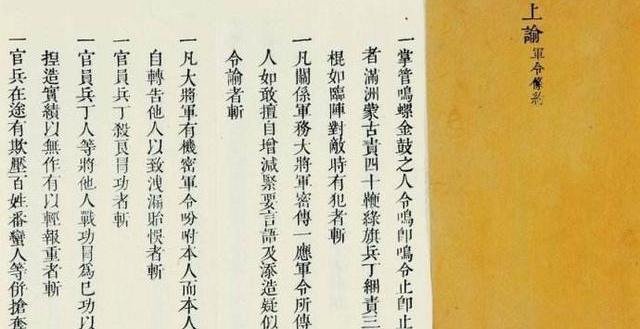 上諭軍令條約
一掌管鳴螺金鼓之人令鳴卽鳴令止卽止
者滿洲蒙古責四十鞭綠旗兵丁綑責三
棍如臨陣對敵時有犯者斬
一凡關係軍務大將軍密傳一應軍令所傳
人如敢擅自增減緊要言語及添造疑似
令諭者斬
一凡大將軍有機密軍令吩咐本人而本人
自轉告他人以致洩漏貽悞者斬
一官員兵丁殺良冒功者斬
一官員兵丁人等將他人戰功冒爲已功以
捏造實績以無作有以輕報重者斬
一官兵在途有欺壓百姓番蠻人等併搶奪